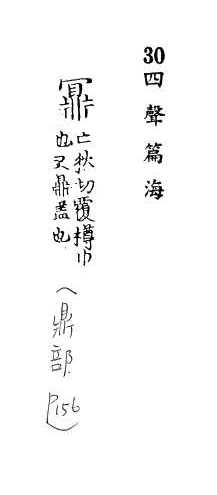 30四聲篇海
鼏
亡狄切覆樽巾
也又鼎蓋也
（鼎部P156）